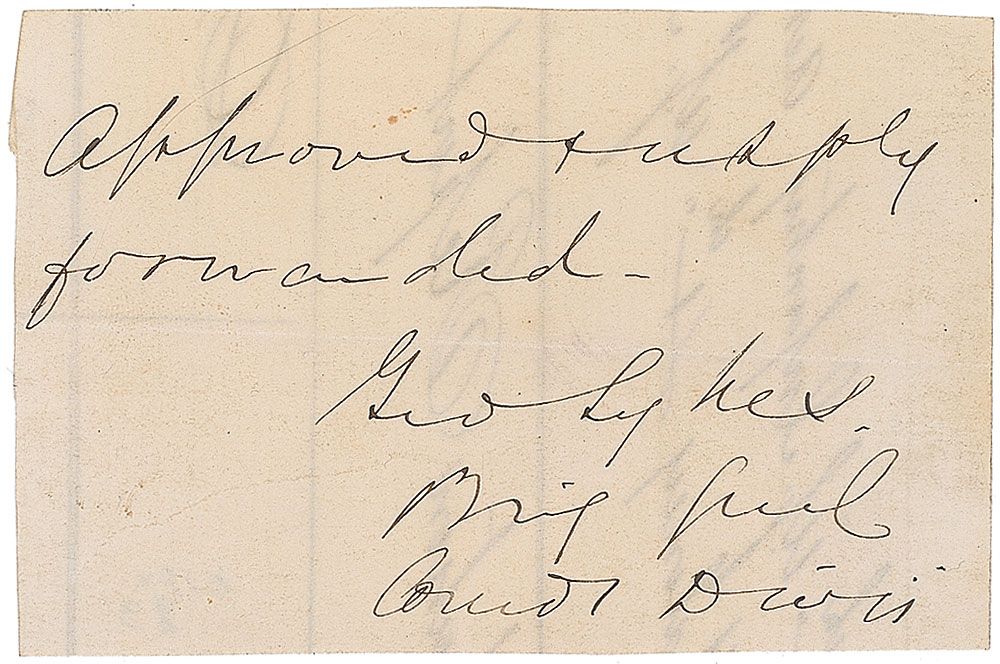 Approved & resply
forwarded -
Geo Sykes.
Brig Genl
Comdr Divis